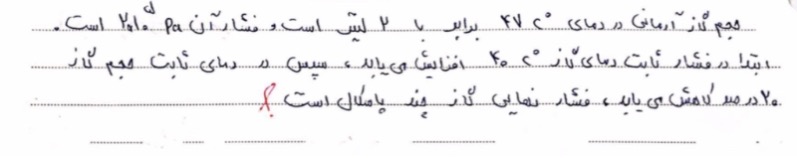 حجم گاز آرمانی در دمای ۴۷ °C برابر با ۲ لیتر است و فشار آن ۲×۱۰⁵ Pa است.
ابتدا در فشار ثابت دمای گاز ۴۰ °C افزایش می یابد، سپس در دمای ثابت حجم گاز
۲۰ درصد کاهش می یابد، فشار نهایی گاز چند پاسکال است؟